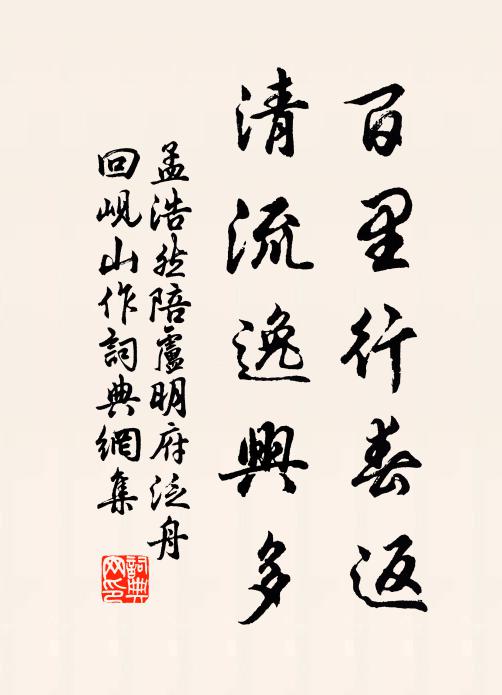 百里行春返
清流逸興多
孟浩然陪盧明府泛舟
回峴山作詞典網集
詞典网印